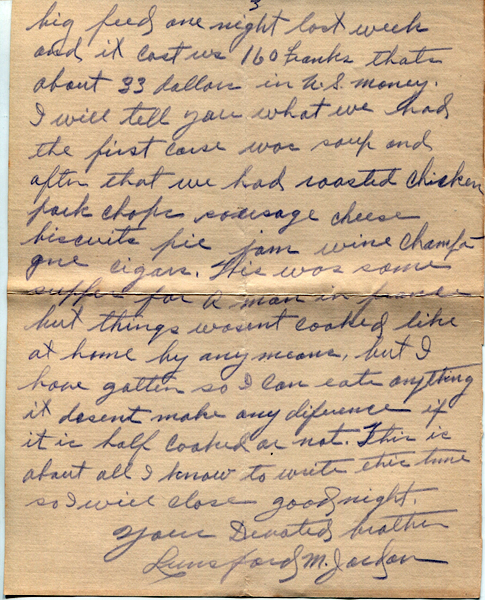 3
big feed one night last week
and it cost us 160 franks thats
about 33 dollars in U.S. money.
I will tell you what we had
the first corse was soup and
after that we had roasted chicken
pork chops sausage cheese
biscuits pie jam wine champa
gne cigars. this was some
supper for a man in france
but things wasent cooked like
at home by any means, but I
have gotten so I can eate anything
it dosent make any diference if
it is half cooked or not. This is
about all I know to write this time
so I will close good night.
Your Devoted brother
Lunsford M. Jordan